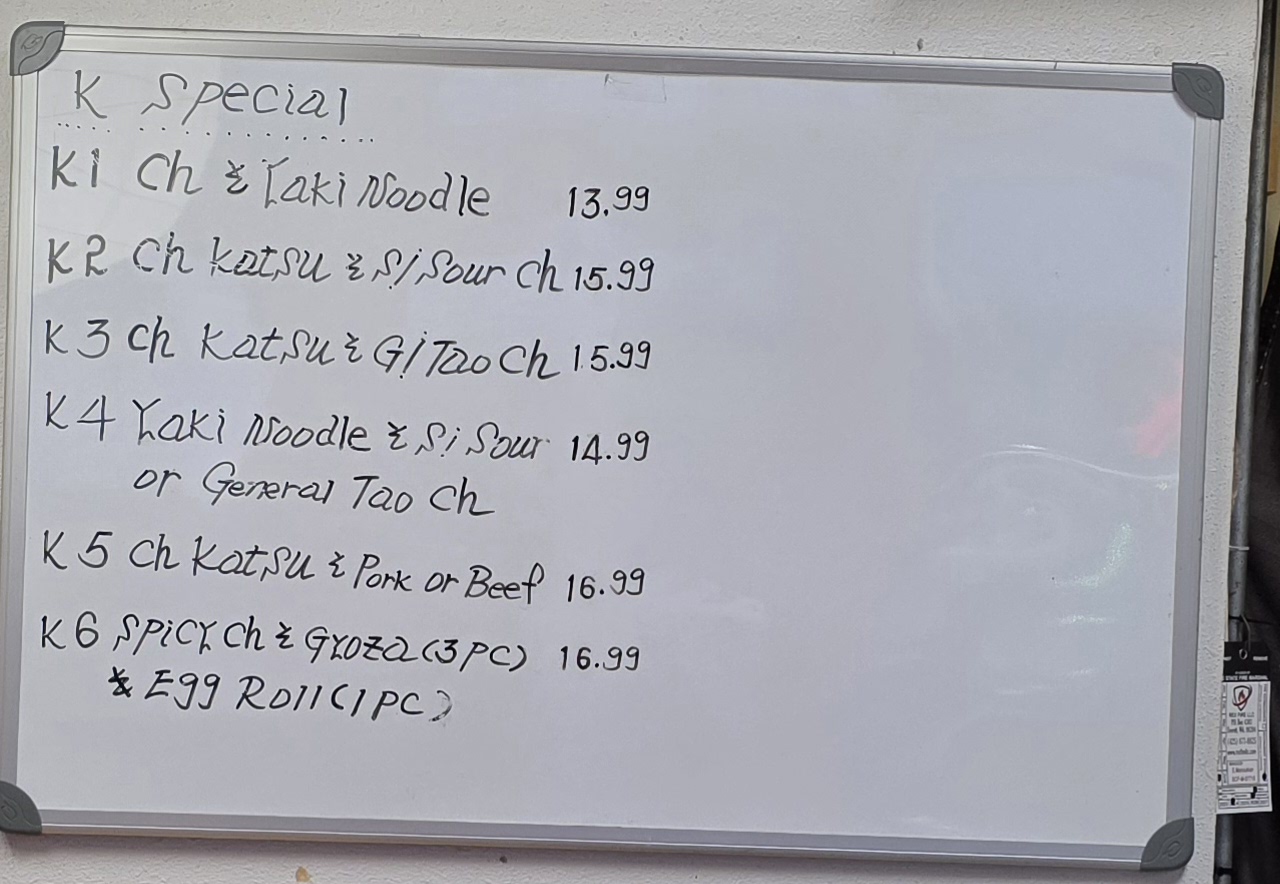 K Special
K1 Ch & Yaki Noodle 13.99
K2 Ch Katsu & S/Sour Ch 15.99
K3 Ch Katsu & G/Tao Ch 15.99
K4 Yaki Noodle & S/Sour 14.99
or General Tao Ch
K5 Ch Katsu & Pork or Beef 16.99
K6 Spicy Ch & Gyoza (3PC) 16.99
& Egg Roll (1PC)
STATE FIRE MARSHAL